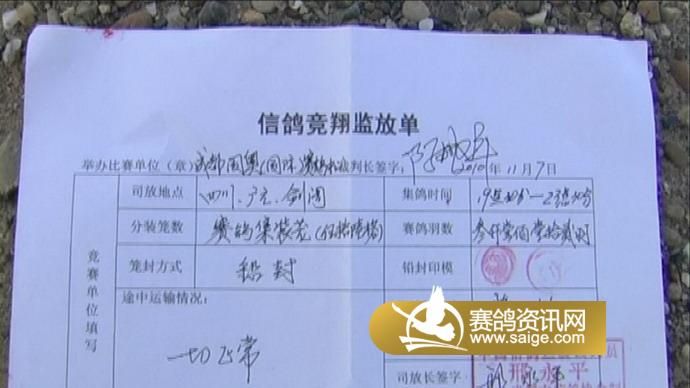 信鸽竞翔监放单
举办比赛单位（章）成都国奥国际赛鸽 裁判长签字： 2010年11月7日
竞赛单位填写
司放地点 四川、广元、剑阁 集鸽时间
分装笼数 赛鸽集装笼 赛鸽羽数 叁仟 佰 拾贰羽
笼封方式 铅封 铅封印模
途中运输情况：
一切正常
司放长签字：
邢永平
赛鸽资讯网
www.saige.com